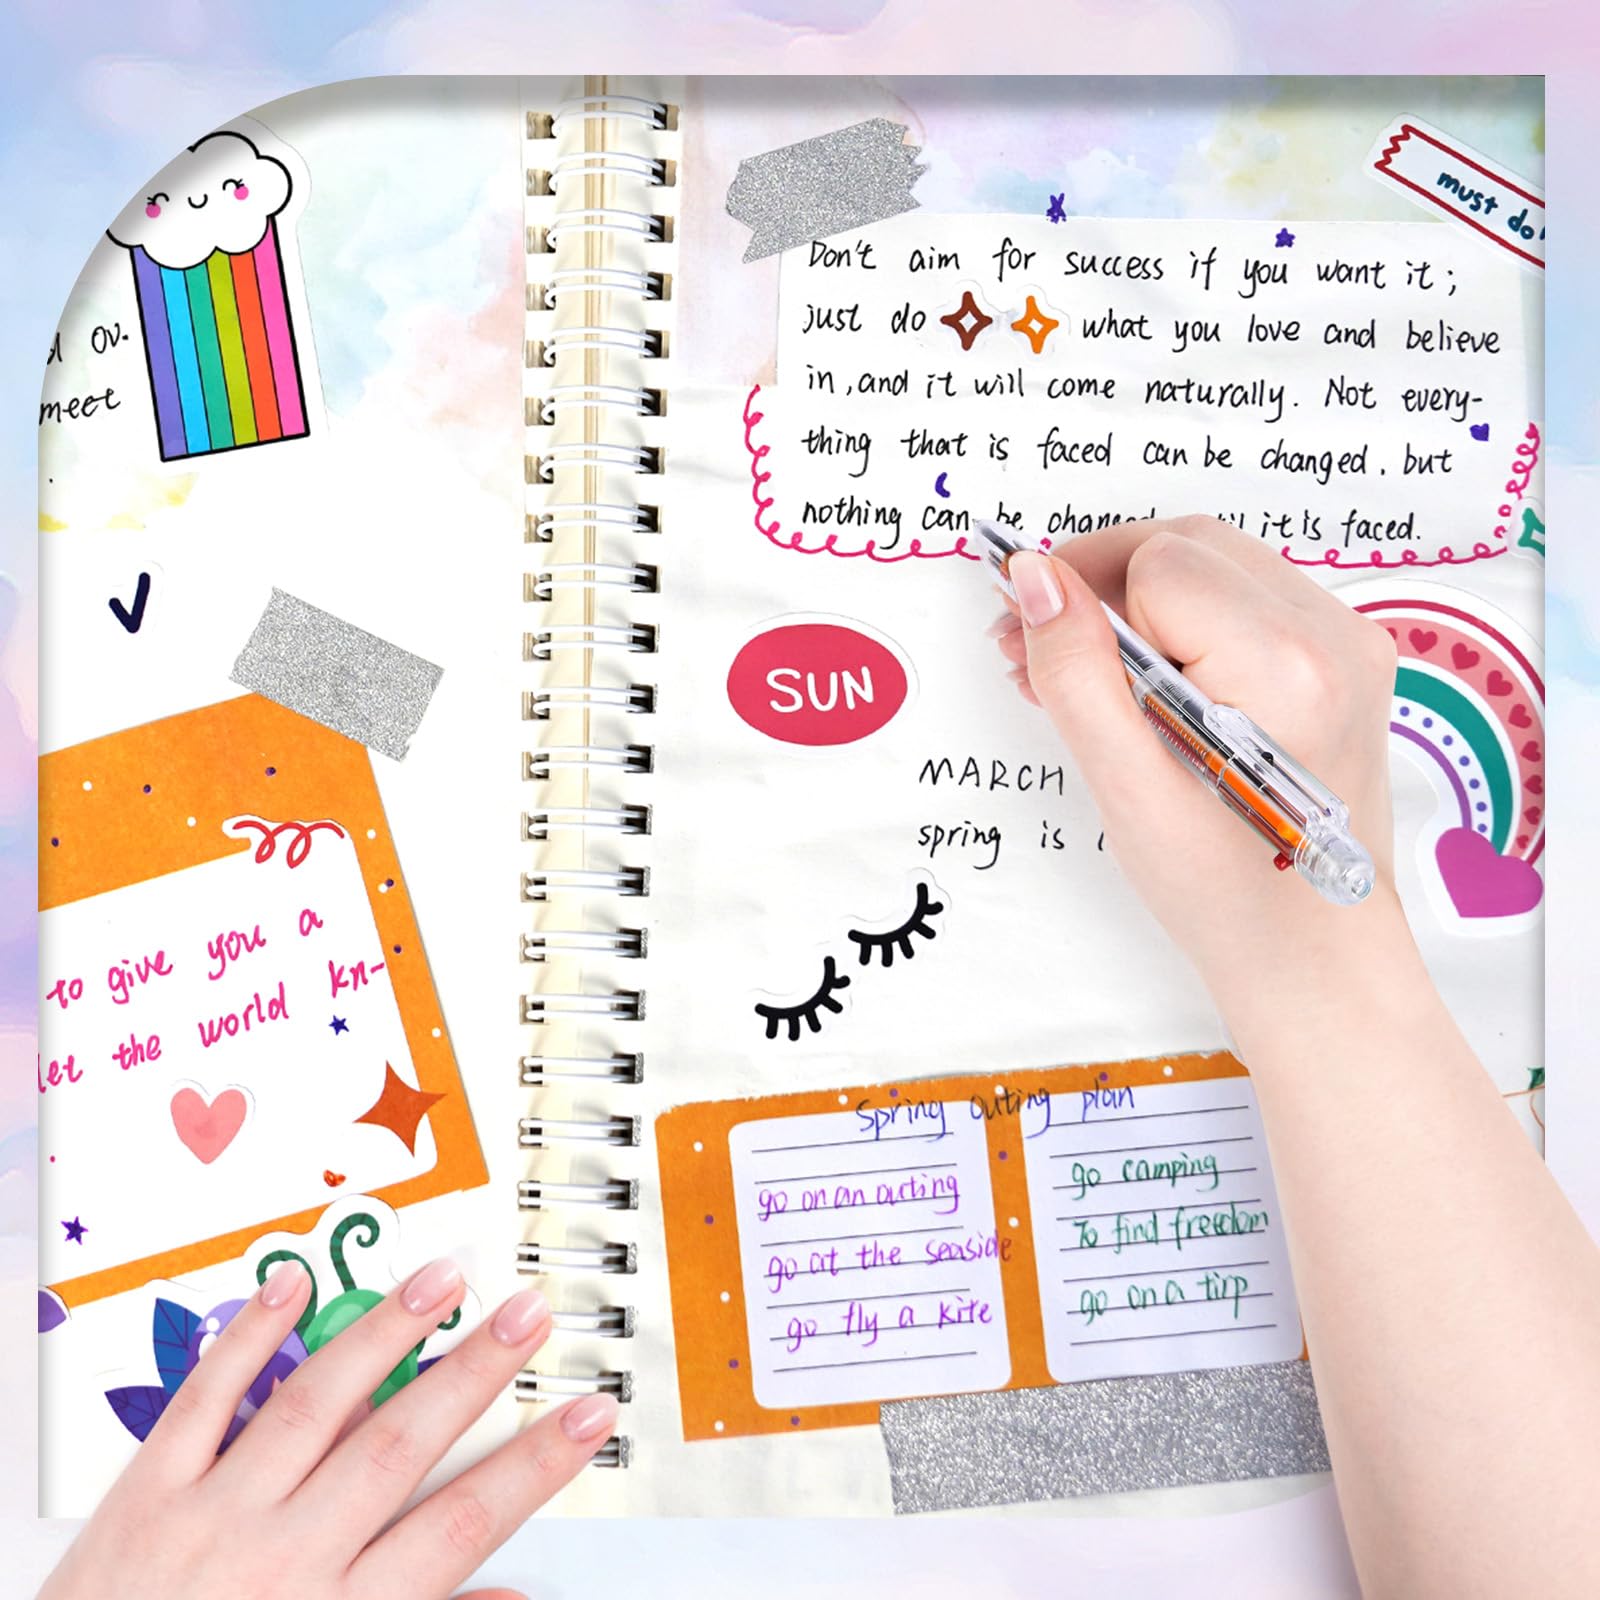 ov.
meet
to give you a
let the world kn-
must do
Don't aim for success if you want it;
just do what you love and believe
in, and it will come naturally. Not every-
thing that is faced can be changed. but
nothing can be changed it is faced.
SUN
MARCH
spring is
Spring outing plan
go on an outing
go at the seaside
go fly a kite
go camping
To find freedom
go on a tirp